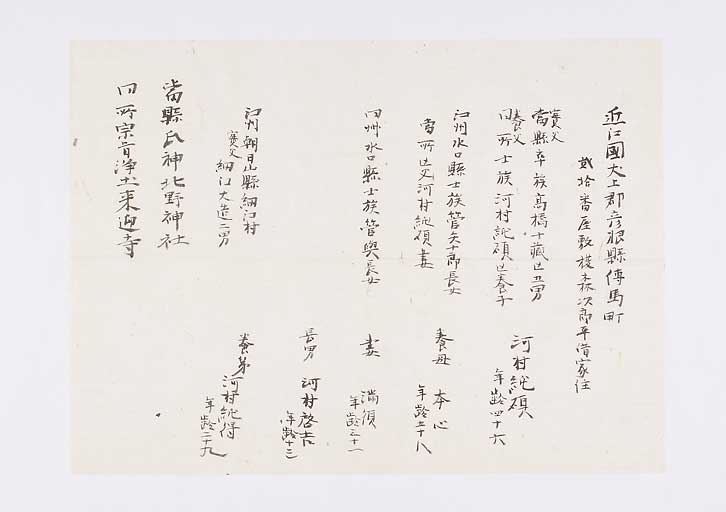 近江國犬上郡彦根縣傳馬町
貳拾番屋敷 森次郎平借家住
實父
當縣卒族高橋十藏亡二男
養父
同所士族河村純碩亡養子
河村純碩
年齢四十六
江州水口縣士族菅矢十郎長女
當所亡父河村純碩妻
養母 本心
年齢五十八
同州水口縣士族菅與長女
妻 満須
年齢三十一
長男 河村啓吉
年齢十三
江州朝日山縣細江村
實父 細江大造二男
養弟
河村純得
年齢二十九
當縣氏神北野神社
同所宗旨浄土来迎寺